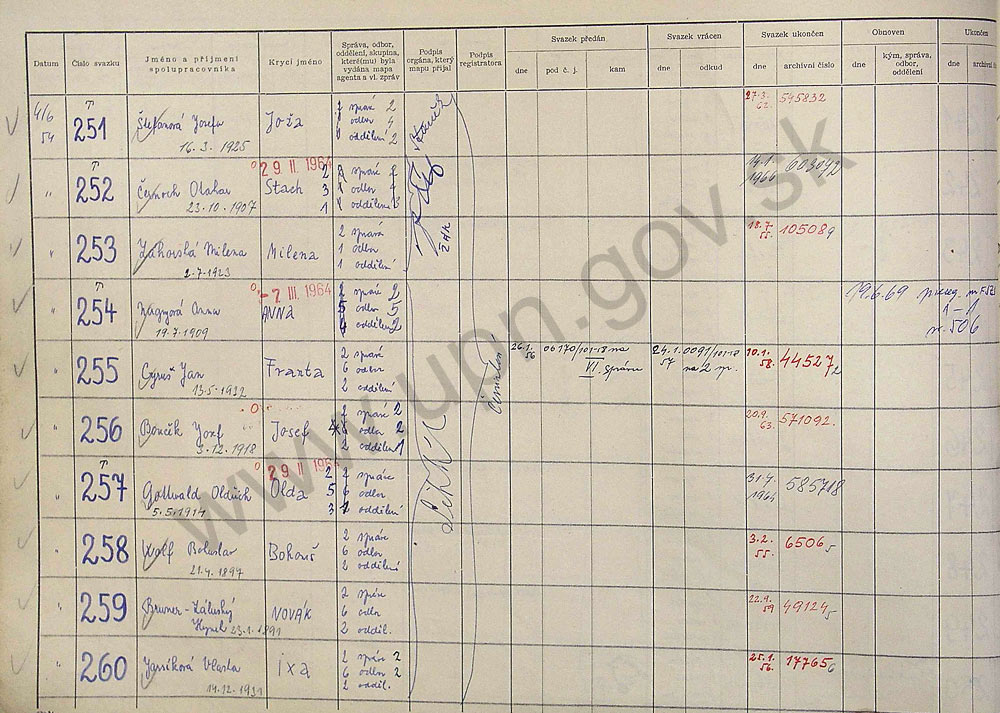 Datum
Číslo svazku
Jméno a příjmení spolupracovníka
Krycí jméno
Správa, odbor, oddělení, skupina, které(mu) byla vydána mapa agenta a vl. zpráv
Podpis orgána, který mapu přijal
Podpis registratora
Svazek předán
dne
pod č. j.
kam
Svazek vrácen
dne
odkud
Svazek ukončen
dne
archivní číslo
Obnoven
dne
kým, správa, odbor, oddělení
Ukončen
dne
archivní
4/6 54
251
Štefanová Josefa
16. 3. 1925
Joža
správa 2
odbor 4
oddělení 2
27.3. 62
545832
"
252
Otakar
23.10.1907
29 II 1964
Stach
2 správa
3 odbor
1 oddělení
14.1. 1966
603042
"
253
Záhorská Milena
2.7.1923
Milena
2 správa
1 odbor
1 oddělení
18.7. 55
105089
"
254
Nagyová Anna
19.7.1909
-2 III. 1964
ANNA
2 správa 2
5 odbor 5
4 oddělení 2
19.6.69
1-1
506
"
255
Cyruš Jan
13.5.1932
Franta
2 správa
6 odbor
2 oddělení
26.1. 56
06170/101-18 na VI. správu
24.1. 57
0091/101-18 na 2
10.1. 58.
445272
"
256
Bončík Jozef
3.12.1918
Josef
2 správa 2
odbor 2
2 oddělení 1
20.9. 63.
571092.
"
257
Gottwald Oldřich
5.5.1914
29 II
Olda
2 správa
5 6 odbor
3 oddělení
31.7. 1964
585718
"
258
Wolf Bohuslav
21.4.1897
Bohouš
2 správa
6 odbor
2 oddělení
3.2. 55.
65065
"
259
Bruner-Záluský
Hynek 23.1.1891
NOVÁK
2 správa
6 odbor
2 odděl.
22.9. 59
491245
"
260
Jarníková Vlasta
14.12.1931
ixa
2 správa 2
6 odbor 2
2 odděl.
25.1. 56.
177656
www.upn.gov.sk